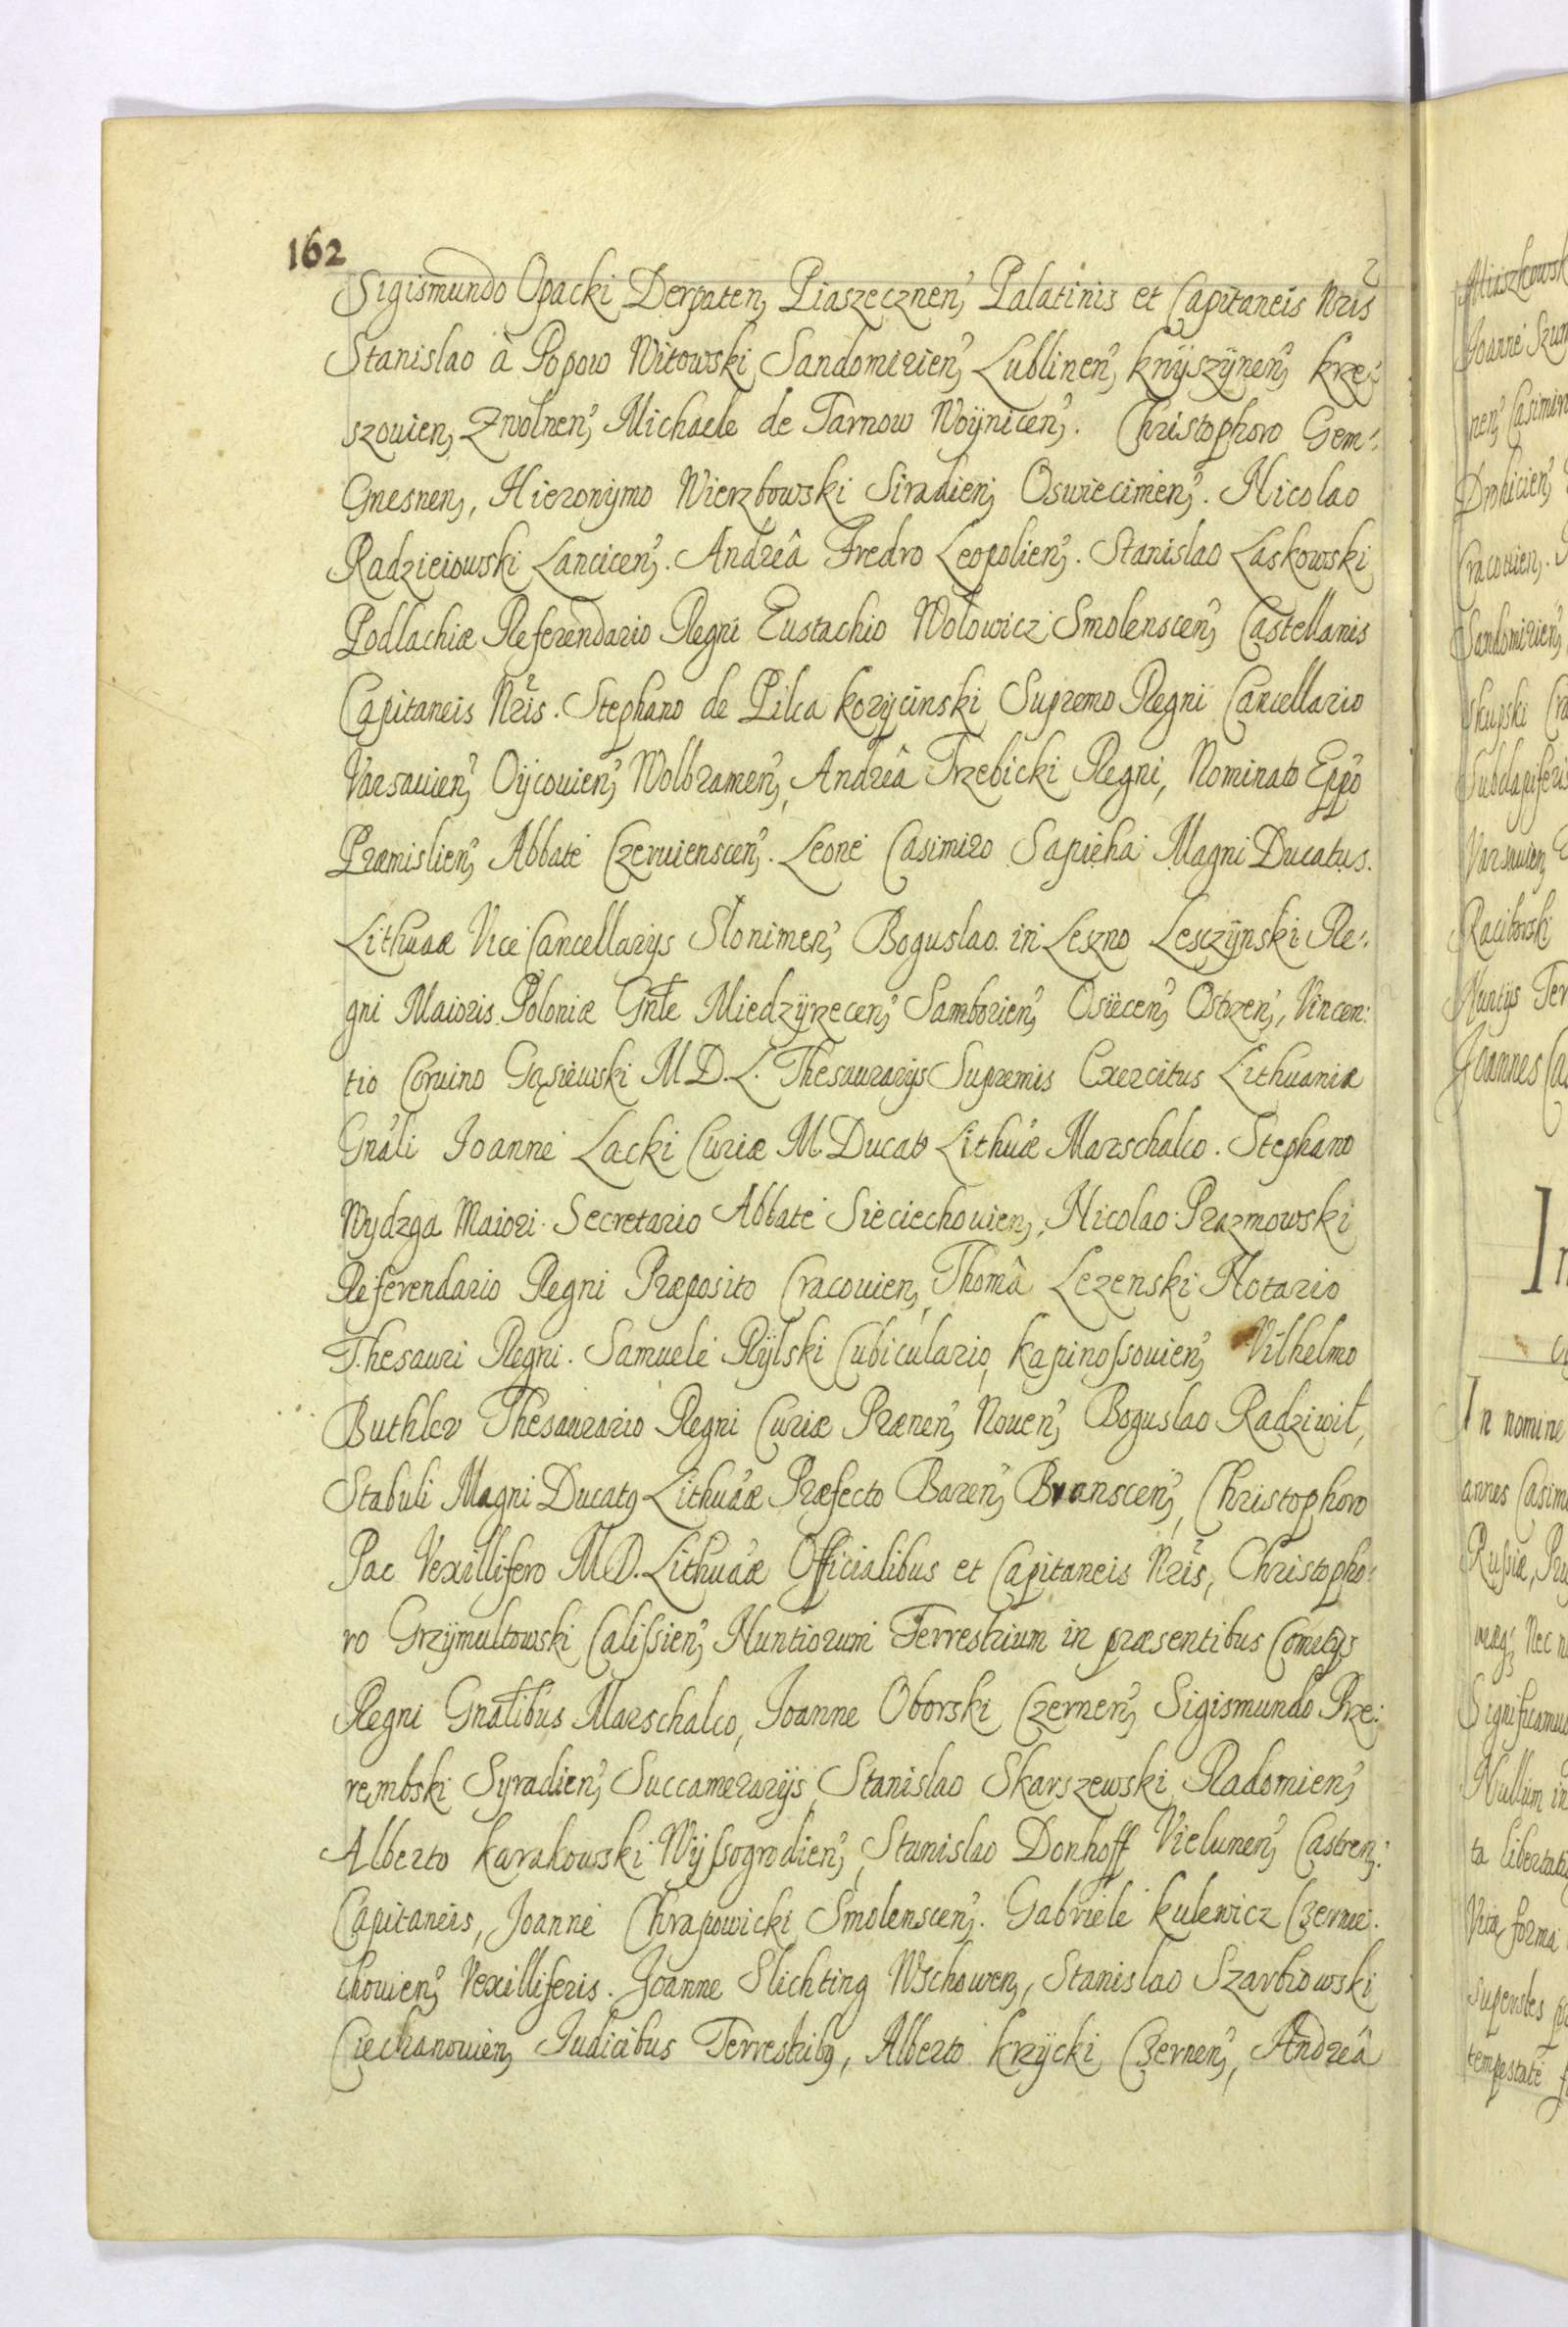 162
Sigismundo Opacki Derpaten, Piaszecznen, Palatinis et Capitaneis Nris
Stanislao à Popow Witowski, Sandomirien, Lublinen, knÿszÿnen, krze:
szouien, Zwolnen, Michaele de Tarnow Woÿnicen. Christophoro Gem:
Gnesnen, Hieronÿmo Wierzbowski Siradien, Oswiecimen. Nicolao
Radzieiowski Lancicen. Andreâ Fredro Leopolien. Stanislao Laskowski
Podlachiæ Referendario Regni Eustachio Wolowicz Smolenscen, Castellanis
Capitaneis Nris. Stephano de Pilca korÿcinski Supremo Regni Cancellario
Varsauien, Oÿcouien, Wolbramen, Andreâ Trzebicki Regni, Nominato Eppo
Præmislien, Abbate Czeruienscen. Leone Casimiro Sapieha Magni Ducatus.
Lithuaæ Vice Cancellarÿs Slonimen, Boguslao in Leszno Lesczÿnski Re:
gni Maioris Poloniæ Gnle Miedzÿrzecen, Samborien, Osiecen, Ostrzen, Vincen:
tio Coruino Gąsiewski M.D.L. Thesaurarÿs Supremis Exercitus Lithuaniæ
Gnali Joanne Lacki Curiæ M. Ducato Lithuæ Marschalco. Stephano
Wydzga Maiori Secretario Abbate Sieciechouien, Nicolao Prazmowski
Referendario Regni Præposito Cracouien, Thomâ Lezenski Notario
Thesauri Regni. Samuele Rÿlski Cubiculario, kapinossouien, Vilhelmo
Buthler Thesaurario Regni Curiæ Prænen, Nouen, Boguslao Radziwił,
Stabuli Magni Ducatq Lithuaæ Præfecto Baren, Branscen, Christophoro
Pac Vexillifero M.D. Lithuaæ Officialibus et Capitaneis Nris, Christopho:
ro Grzÿmultowski Calissien, Nuntiorum Terrestrium in præsentibus Comitÿs
Regni Gnalibus Marschalco, Joanne Oborski Czernen, Sigismundo Prze:
rembski Syradien, Succamerarÿs, Stanislao Skarszewski Radomien,
Alberto karakowski Wÿssogrodien, Stanislao Donhoff Vielunen, Castren:
Capitaneis, Joanne Chrapowicki Smolenscen. Gabriele kulewicz Czernie:
chouien, Vexilliferis. Joanne Slichting Wschowen, Stanislao Szarbiowski
Ciechanouien, Judicibus Terrestribq, Alberto krzÿcki Czernen, Andreâ